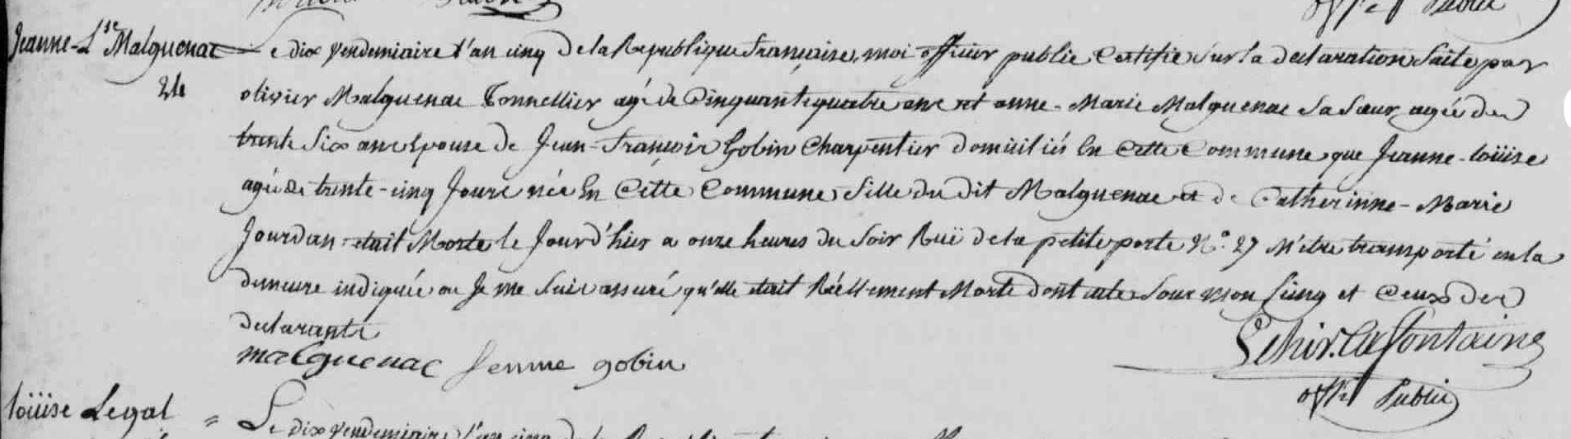 offr Public
Jeanne-Lse Malguenac
24
Le dix vendemiaire l'an cinq de la Republique française, moi officier public certifie sur la declaration faite par
olivier Malguenac Tonnellier agé de Cinquante quatre ans et anne-Marie Malguenac sa sœur, agée de
trente six ans Epouse de Jean-François Gobin Charpentier domiciliés En Cette Commune, que Jeanne-loüise
agée de trente-cinq jours née En Cette Commune, fille du dit Malguenac et de Catherinne-Marie
Jourdan etait Morte le jour d'hier a onze heures du soir Ruë de la petite porte N°. 27 M'etre transporté en la
demeure indiquée ou Je me suis assuré qu'elle etait Réellement Morte dont acte sous mon seing et Ceux des
declarants
malguenac femme gobin
Lehir. Lafontaine
offr Public
loüise Legal
= Le dix vendemiaire l'an cinq de la